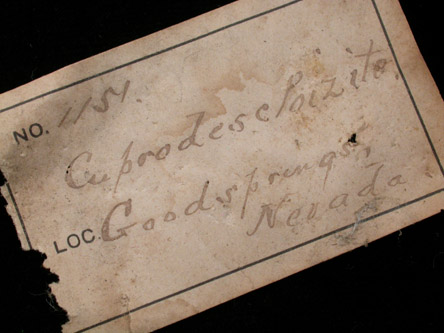 NO. 1151.
Cuprodescloizite.
LOC. Goodsprings,
Nevada.